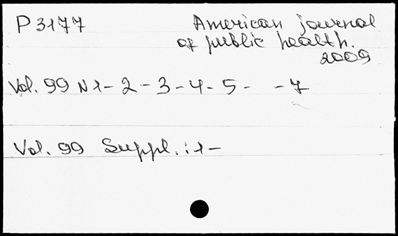 P 3177
American journal
of public health.
2009
Vol. 99 N 1 - 2 - 3 - 4 - 5 - - 7
Vol. 99 Suppl. : 1 -